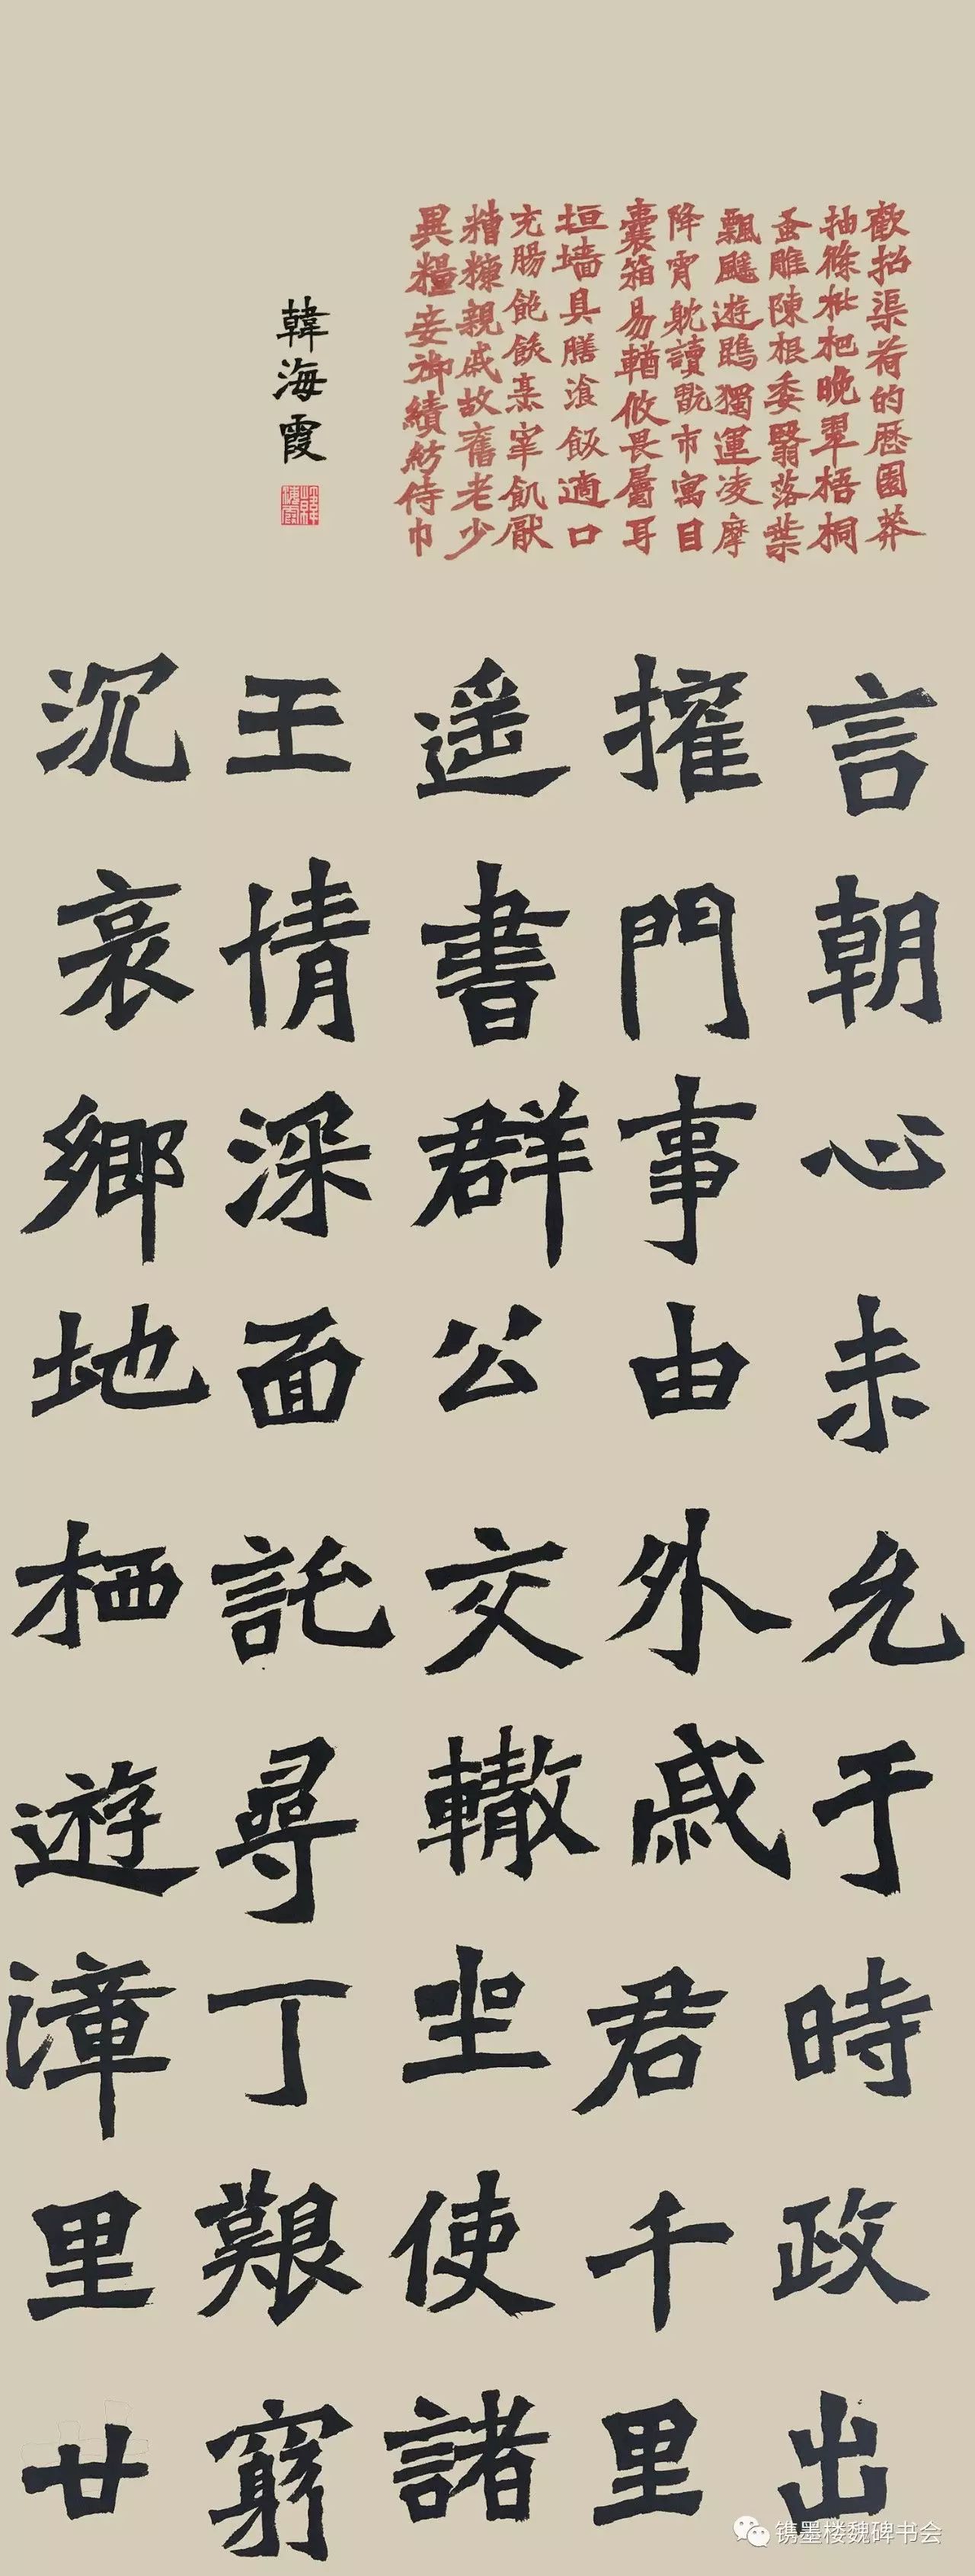 歡招渠荷的歷園莽
抽條枇杷晚翠梧桐
蚤雕陳根委翳落葉
飄颻遊鵾獨運凌摩
降霄耽讀翫市寓目
囊箱易輶攸畏屬耳
垣墻具膳湌飯適口
充腸飽飫烹宰飢厭
糟糠親戚故舊老少
異糧妾御績紡侍巾
韓海霞
言朝心未允于時政出
攉門事由外戚君千里
遥書群公交轍坐使諸
王情深面託尋丁艱窮
沉哀鄉地栖遊漳里廿
镌墨楼魏碑书会